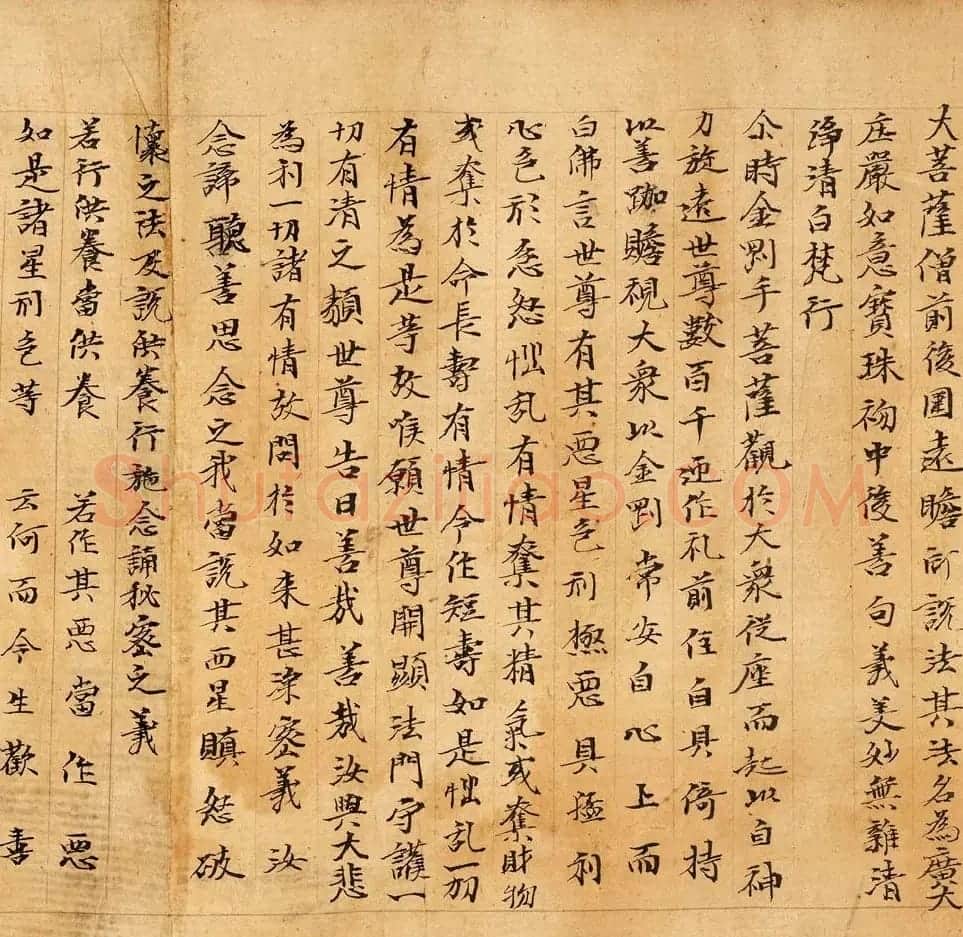 大菩薩僧前後圍遶瞻所說法其法名為廣大
庄嚴如意寶珠初中後善句義美妙無雜清
淨清白梵行
尒時金剛手菩薩觀於大衆從座而起以自神
力旋遶世尊數百千迊作礼前住自具倚持
以善跏瞻視大衆以金剛掌安自心上而
白佛言世尊有其惡星色刑極惡具猛利
心色形忿怒惱乱有情奪其精氣或奪財物
或奪於命長壽有情令作短壽如是惱乱一切
有情為是等故唯願世尊開顯法門守護一
切有清之類世尊告曰善哉善哉汝興大悲
為利一切諸有情故問於如来甚深密義汝
念諦聽善思念之我當說其西星瞋怒破
懷之法及說供養行施念誦秘密之義
若行供養當供養 若作其惡當作惡
如是諸星刑色等 云何而令生歡喜
Shufaziliao.COM